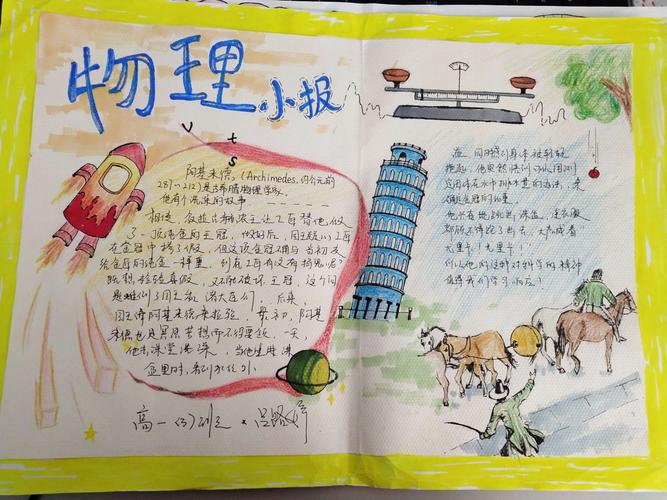 物理
小报
V t s
阿基米德,(Archimedes,约公元前
287~212)是古希腊物理学家。
他有个流传的故事
相传,叙拉古赫农王让工匠替他做
了一顶纯金的王冠,做好后,国王疑心工匠
在金冠中掺了假,但这顶金冠确与当初交
给金匠的纯金一样重,到底工匠有没有捣鬼呢?
既想检验真假,又不能破坏王冠,这个问
题难倒了国王和诸大臣们,后来,
国王请阿基米德来检验,最初,阿基
米德也是冥思苦想而不得要领。一天,
他去澡堂洗澡,当他坐进澡
盆里时,看到水往外
溢,同时感到身体被轻轻
拖起,他突然
定固体在水中排水量的办法,来
确定金冠的
他兴奋地跳出澡盆,连衣服
都顾不得跑了出去,大声喊着"
尤里卡!尤里卡!"
的精神
值得我们学习
高一 班